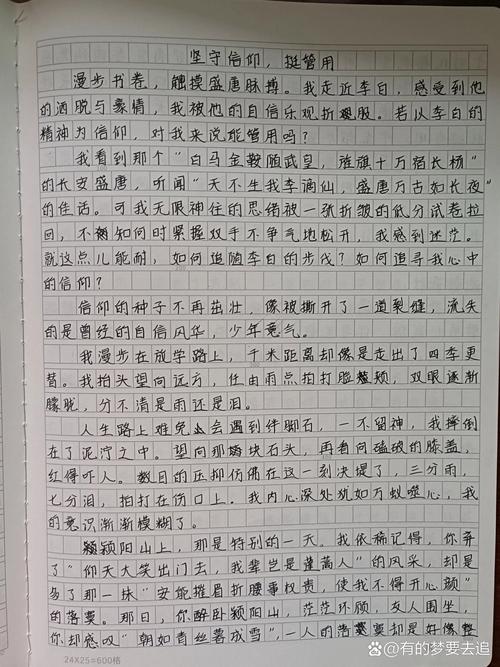 坚守信仰，挺管用
漫步书卷，触摸盛唐脉搏。我走近李白，感受到他
的洒脱与豪情，我被他的自信乐观折服。若以李白的
精神为信仰，对我来说能管用吗？
我看到那个“白马金鞍随武皇，旌旗十万宿长杨”
的长安盛唐，听闻“天不生我李谪仙，盛唐万古如长夜”
的佳话。可我无限神往的思绪被一张折皱的低分试卷拉
回，不知何时紧握双手不争气地松开，我感到迷茫。
就这点儿能耐，如何追随李白的步伐？如何追寻我心中
的信仰？
信仰的种子不再茁壮，像被撕开了一道裂缝，流失
的是曾经的自信风华，少年意气。
我漫步在放学路上，千米距离却像是走出了四季更
替。我抬头望向远方，任由雨点拍打脸颊，双眼逐渐
朦胧，分不清是雨还是泪。
人生路上难免会遇到绊脚石，一不留神，我摔倒
在了泥泞之中。望向那块石头，再看向磕破的膝盖，
红得吓人。数日的压抑仿佛在这一刻决堤了，三分雨，
七分泪，拍打在伤口上。我内心深处犹如万蚁噬心，我
的意识渐渐模糊了。
颍阳山上，那是特别的一天。我依稀记得，你弃
了“仰天大笑出门去，我辈岂是蓬蒿人”的风采，却是
多了那一抹“安能摧眉折腰事权贵，使我不得开心颜”
的落寞。那日，你醉卧颍阳山，茫茫环顾，友人围坐，
你却感叹“朝如青丝暮成雪”，一人的落寞却是好像整
24X25=600格
@有的梦要去追